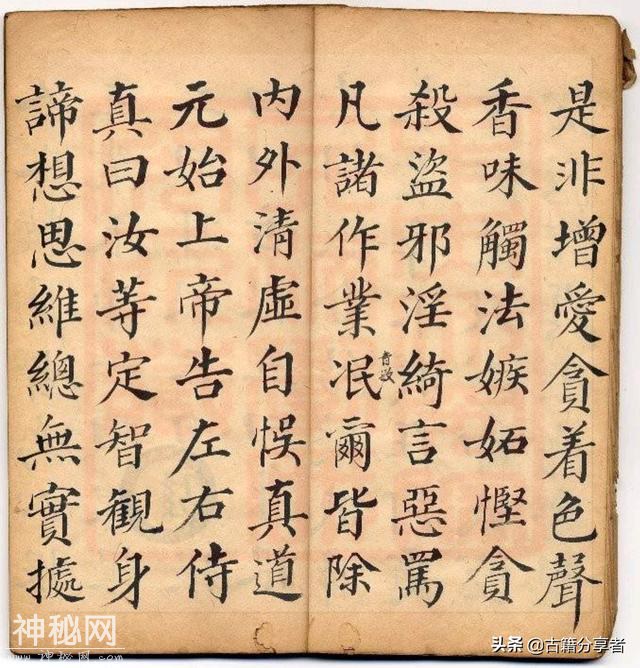 是非增愛貪着色聲
香味觸法嫉妬慳貪
殺盜邪淫綺言惡罵
凡諸作業泯音敏爾皆除
内外清虛自悮真道
元始上帝告左右侍
真曰汝等定智觀身
諦想思維總無實據
神秘网
头条 @古籍分享者